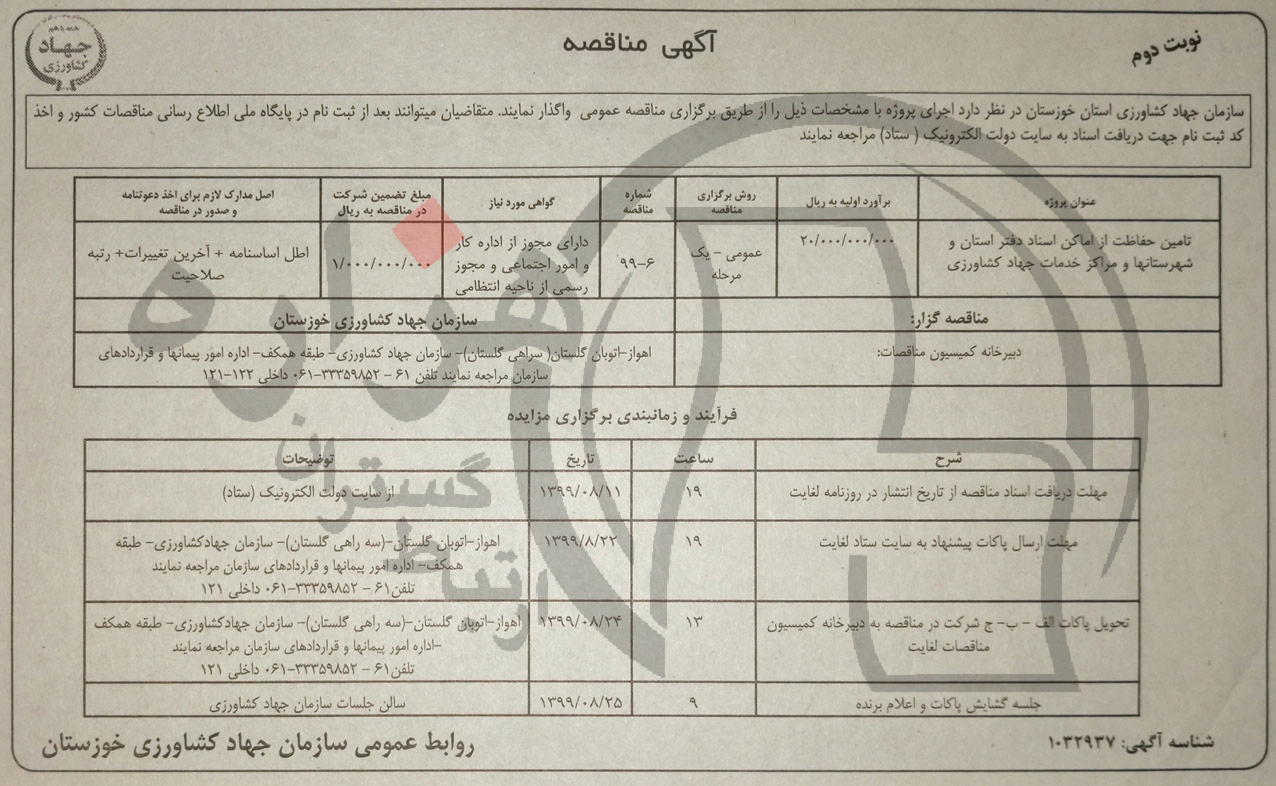 نوبت دوم
آگهی مناقصه
جهاد
کشاورزی
سازمان جهاد کشاورزی استان خوزستان در نظر دارد اجرای پروژه با مشخصات ذیل را از طریق برگزاری مناقصه عمومی واگذار نمایند. متقاضیان میتوانند بعد از ثبت نام در پایگاه ملی اطلاع رسانی مناقصات کشور و اخذ
کد ثبت نام جهت دریافت اسناد به سایت دولت الکترونیک ( ستاد) مراجعه نمایند
عنوان پروژه
برآورد اولیه به ریال
روش برگزاری
مناقصه
شماره
مناقصه
گواهی مورد نیاز
مبلغ تضمین شرکت
در مناقصه به ریال
اصل مدارک لازم برای اخذ دعوتنامه
و صدور در مناقصه
تامین حفاظت از اماکن اسناد دفتر استان و
شهرستانها و مراکز خدمات جهاد کشاورزی
۲۰/۰۰۰/۰۰۰/۰۰۰
عمومی – یک
مرحله
۹۹-۶
دارای مجوز از اداره کار
و امور اجتماعی و مجوز
رسمی از ناحیه انتظامی
۱/۰۰۰/۰۰۰/۰۰۰
اطل اساسنامه + آخرین تغییرات+ رتبه
صلاحیت
مناقصه گزار:
سازمان جهاد کشاورزی خوزستان
دبیرخانه کمیسیون مناقصات:
اهواز-اتوبان گلستان( سراهی گلستان)- سازمان جهاد کشاورزی- طبقه همکف- اداره امور پیمانها و قراردادهای
سازمان مراجعه نمایند تلفن ۶۱ – ۳۳۳۵۹۸۵۲-۰۶۱ داخلی ۱۲۲-۱۲۱
فرآیند و زمانبندی برگزاری مزایده
شرح
ساعت
تاریخ
توضیحات
مهلت دریافت اسناد مناقصه از تاریخ انتشار در روزنامه لغایت
۱۹
۱۳۹۹/۰۸/۱۱
از سایت دولت الکترونیک (ستاد)
مهلت ارسال پاکات پیشنهاد به سایت ستاد لغایت
۱۹
۱۳۹۹/۸/۲۲
اهواز-اتوبان گلستان-(سه راهی گلستان)- سازمان جهادکشاورزی- طبقه
همکف- اداره امور پیمانها و قراردادهای سازمان مراجعه نمایند
تلفن۶۱ – ۳۳۳۵۹۸۵۲-۰۶۱ داخلی ۱۲۱
تحویل پاکات الف – ب- ج شرکت در مناقصه به دبیرخانه کمیسیون
مناقصات لغایت
۱۳
۱۳۹۹/۰۸/۲۴
اهواز-اتوبان گلستان-(سه راهی گلستان)- سازمان جهادکشاورزی- طبقه همکف
-اداره امور پیمانها و قراردادهای سازمان مراجعه نمایند
تلفن۶۱ – ۳۳۳۵۹۸۵۲-۰۶۱ داخلی ۱۲۱
جلسه گشایش پاکات و اعلام برنده
۹
۱۳۹۹/۰۸/۲۵
سالن جلسات سازمان جهاد کشاورزی
شناسه آگهی: ۱۰۳۲۹۳۷
روابط عمومی سازمان جهاد کشاورزی خوزستان
هزاره
گستران
ارتباط